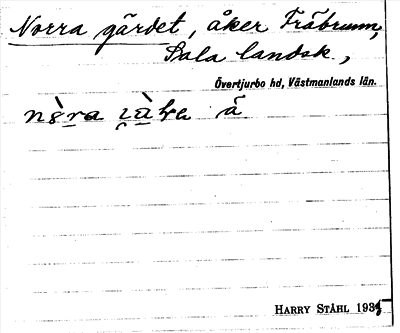 Norra gärdet, åker Fröbrunn,
Sala landsk.,
Övertjurbo hd, Västmanlands län.
å
HARRY STÅHL 1934